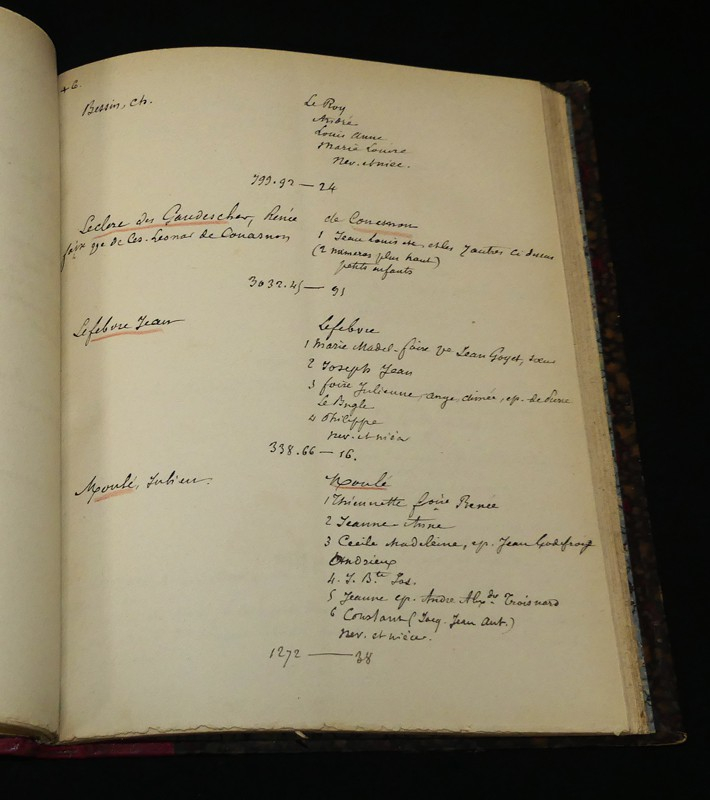 Bessin, Ch.
Le Roy
André
Louis Anne
Marie Louise
Nev. et nièce.
799.92 — 24
Leclerc des Gaudesches, Renée
de Couesnon
ve de Ces. Leonor de Couasnon
1 Jean Louis et les autres ci dessus
(2 numeros plus haut)
petits enfants
3032.45 — 91
Lefebvre Jean
Lefebvre
1 Marie Madel- foise Ve Jean Goyet, sœur
2 Joseph Jean
3 foise Julienne, ange, aimée, ep. de Pierre
Le Bugle
4 Philippe
nev. et nièce
338.66 — 16.
Moulé, Julien.
Moulé
1 Thiennette foise Renée
2 Jeanne-Anne
3 Cecile Madeleine, ep. Jean Godefroy
Andrieux
4. J. Bte Jos.
5 Jeanne ep. Andre Alxdre Troisnard
6 Constant (Jacq. Jean Ant.)
Nev. et nièce.
1272 — 38